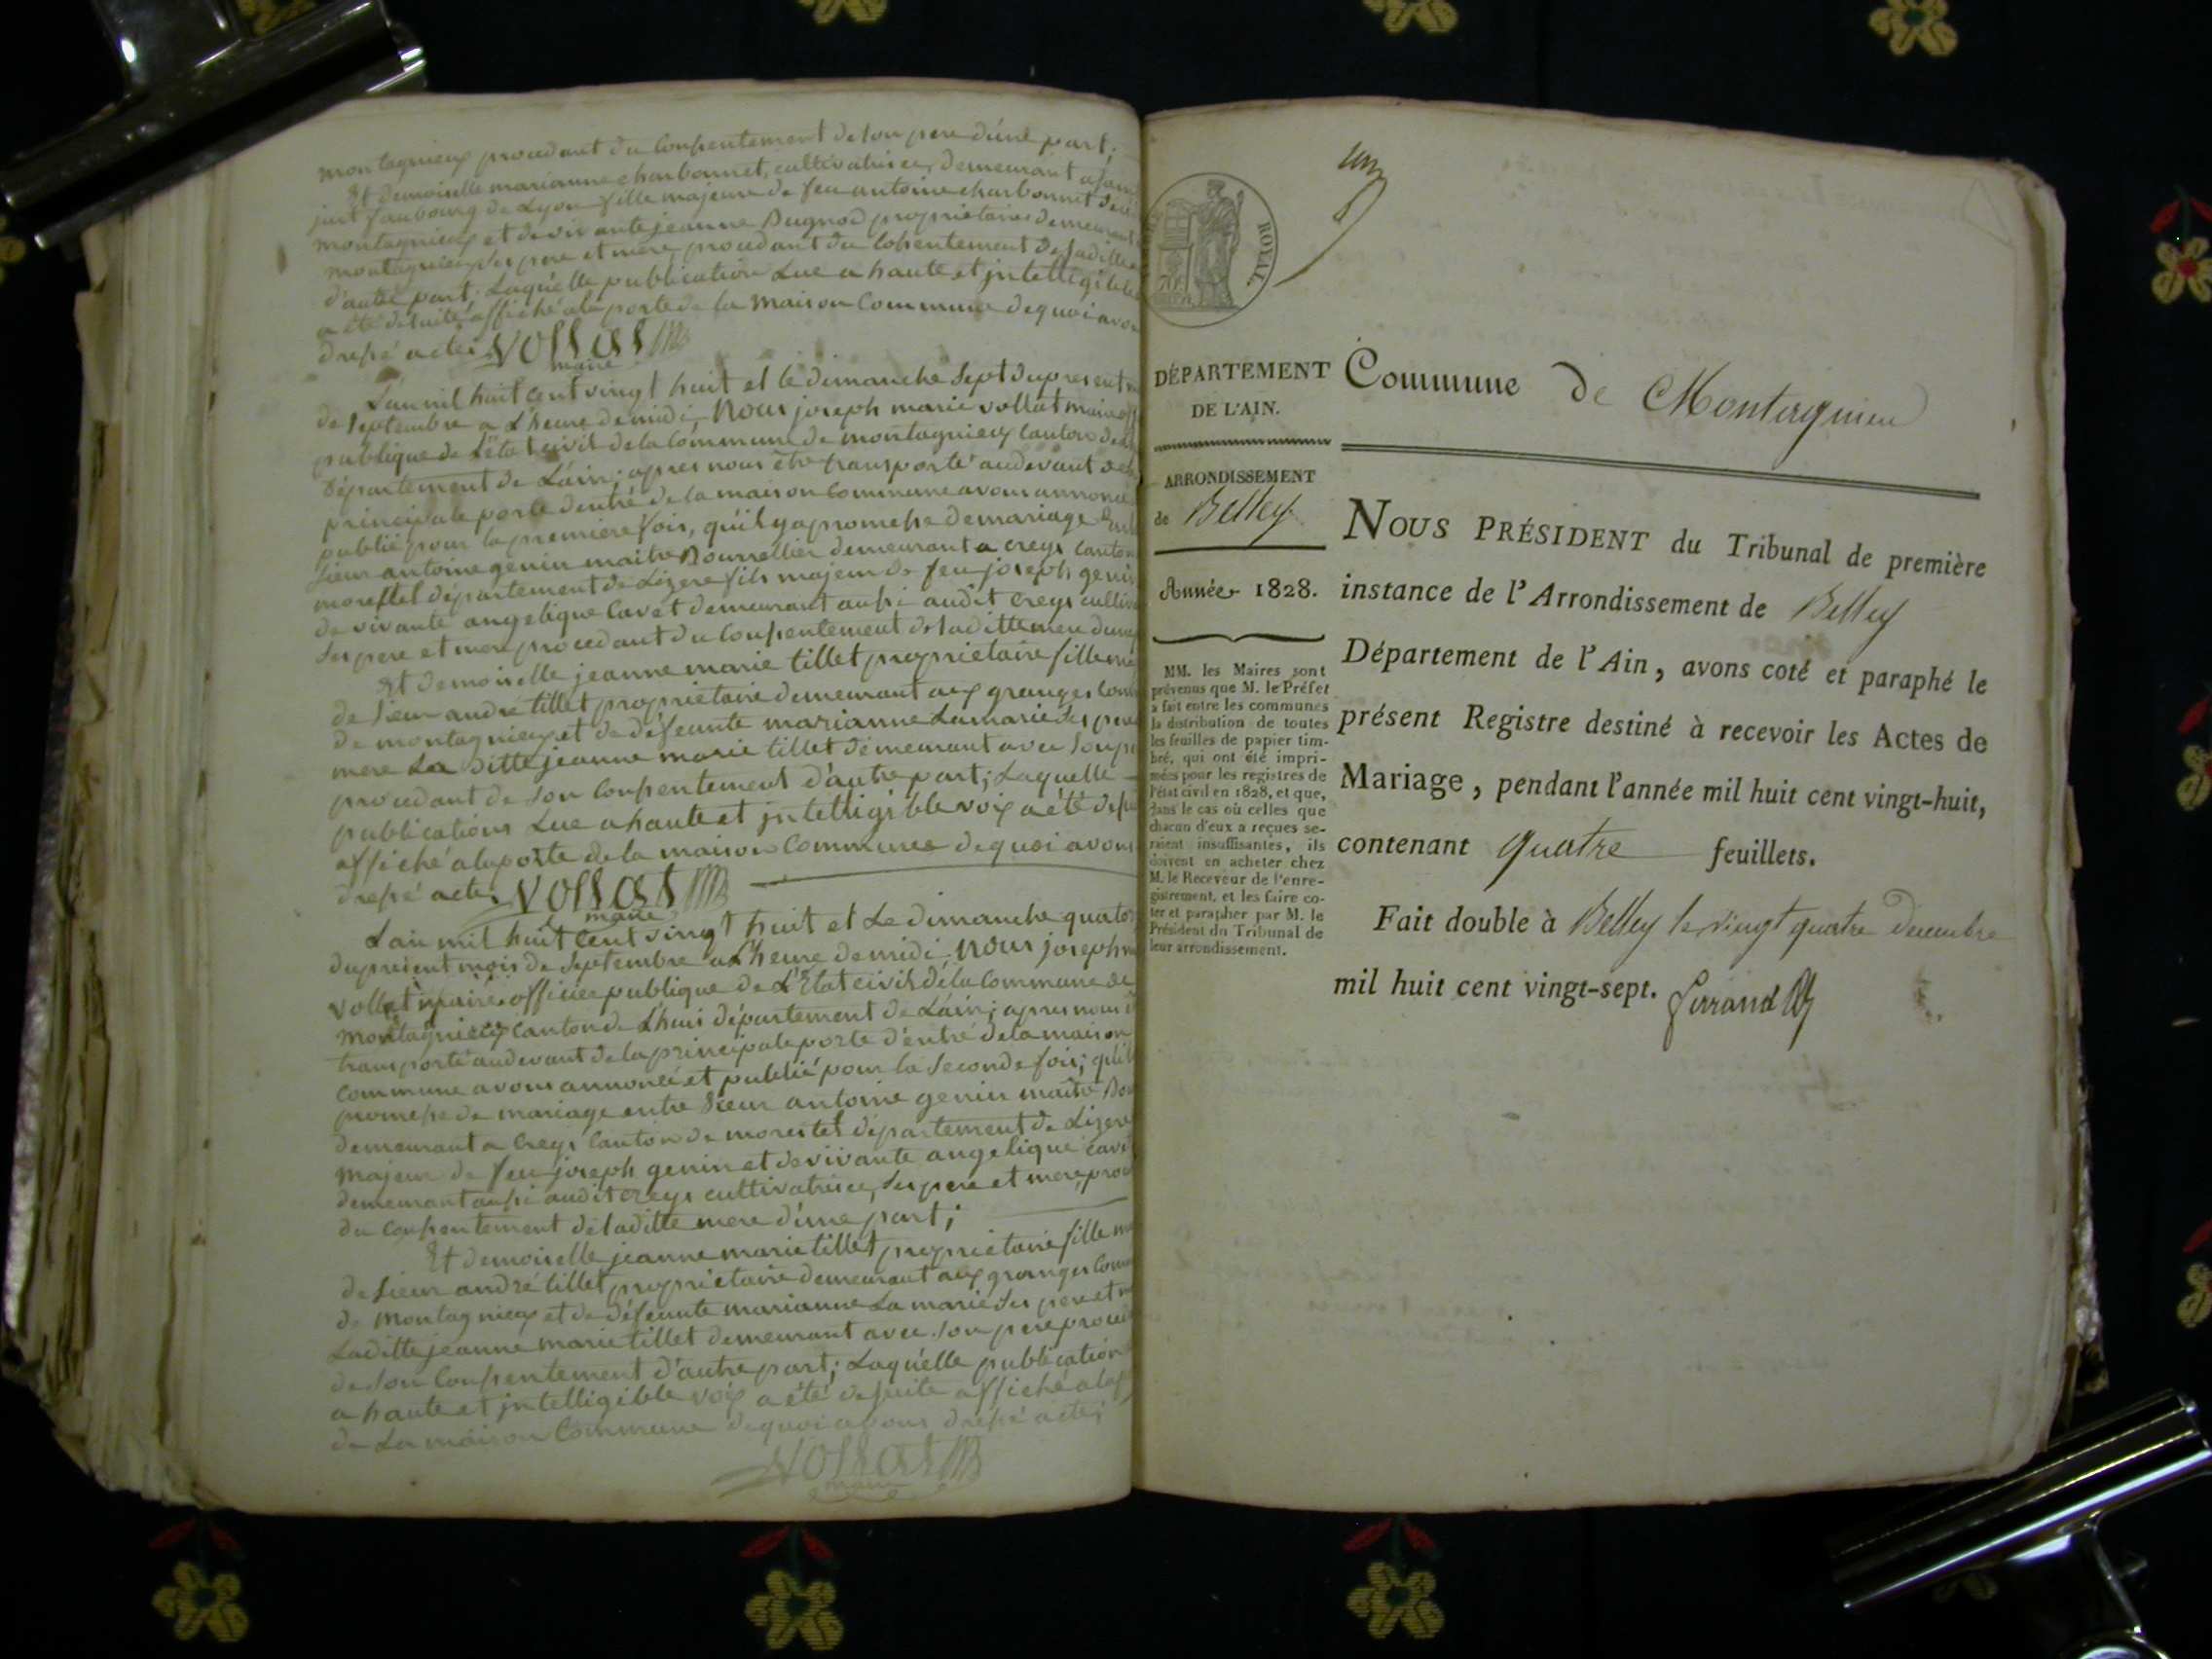 montagnieux procedant du consentement de son pere d'une part;
Et demoiselle marianne charbonnet, cultivatrice, demeurant a saint
just faubourg de Lyon fille majeure de feu antoine charbonnet
montagnieux et de vivante jeanne Dugnod propriétaire demeurant
montagnieux ses pere et mere, procedant du consentement de sa ditte
d'autre part; Laquelle publication Lue a haute et intelligible
a été de suite affiché a la porte de la Maison Commune de quoi avons
dressé acte; vollat
maire
L'an mil huit cent vingt huit et le dimanche sept du present
de septembre a L'heure de midi, Nous joseph marie vollat maire
publique de L'état civil de la Commune de montagnieux Canton de
Département de L'ain; apres nous être transporté audevant de la
principale porte d'entré de la maison Commune avons annoncé
publié pour la premiere fois, qu'il y a promesse de mariage
sieur antoine genin maitre Bourrellier demeurant a creys canton
morestel département de Lizere fils majeur de feu joseph genin
de vivante angelique Cavet demeurant aussi audit Creys
ses pere et mere procedant du Consentement de sa ditte mere
Et demoiselle jeanne marie tillet propriétaire fille
de sieur andré tillet propriétaire demeurant aux granges
de montagnieux et de défeunte marianne Lamarie ses pere
mere La ditte jeanne marie tillet demeurant avec son pere
procedant de son Consentement d'autre part; Laquelle
publications Lue a haute et intelligible voix a été
affiché a la porte de la maison Commune de quoi avons
dressé acte; vollat
maire
L'an mil huit Cent vingt huit et Le dimanche
du present mois de Septembre a L'heure de midi, Nous joseph
vollat maire officier publique de L'état civil de la Commune de
Montagnieux Canton de Lhuis département de L'ain; apres nous
transporté audevant de la principale porte d'entré de la maison
Commune avons annoncé et publié pour la seconde fois; qu'il
promesse de mariage entre Sieur antoine genin maitre
demeurant a Creys Canton de morestel département de Lizere
majeur de feu joseph genin et de vivante angelique
demeurant aussi audit creys cultivatrice, ses pere et mere,
du consentement de la ditte mere d'une part;
Et demoiselle jeanne marie tillet propriétaire fille
de sieur andré tillet propriétaire demeurant aux granges
de Montagnieux et de défeunte marianne La marie ses pere et
Laditte jeanne marie tillet demeurant avec son pere
de son Consentement d'autre part; Laquelle publication
a haute et intelligible voix a été de suite affiché a la
de La maison Commune de quoi avons dressé acte;
vollat
maire
un
ROYAL
DÉPARTEMENT
DE L'AIN.
Commune de Montagnieu
ARRONDISSEMENT
de Belley
Année 1828.
MM. les Maires sont
prévenus que M. le Préfet
a fait entre les communes
la distribution de toutes
les feuilles de papier tim-
bré, qui ont été impri-
mées pour les registres de
l'état civil en 1828, et que,
dans le cas où celles que
chacun d'eux a reçues se-
raient insuffisantes, ils
doivent en acheter chez
M. le Receveur de l'enre-
gistrement, et les faire co-
ter et parapher par M. le
Président du Tribunal de
leur arrondissement.
NOUS PRÉSIDENT du Tribunal de première
instance de l'Arrondissement de Belley
Département de l'Ain, avons coté et paraphé le
présent Registre destiné à recevoir les Actes de
Mariage, pendant l'année mil huit cent vingt-huit,
contenant quatre feuillets.
Fait double à Belley le vingt quatre decembre
mil huit cent vingt-sept. Ferrand